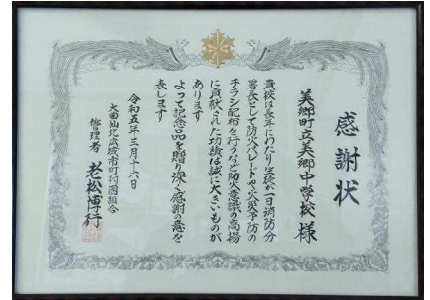 感謝状
美郷町立美郷中学校様
貴校は長年にわたり生徒が一日消防分
署長として防火パレードや火災予防の
チラシ配布を行うなど防火意識の高揚
に貢献された功績は誠に大きいものが
あります
よって記念品を贈り深く感謝の意を
表します
令和五年三月十六日
大曲仙北広域市町村圏組合
管理者 老松博行